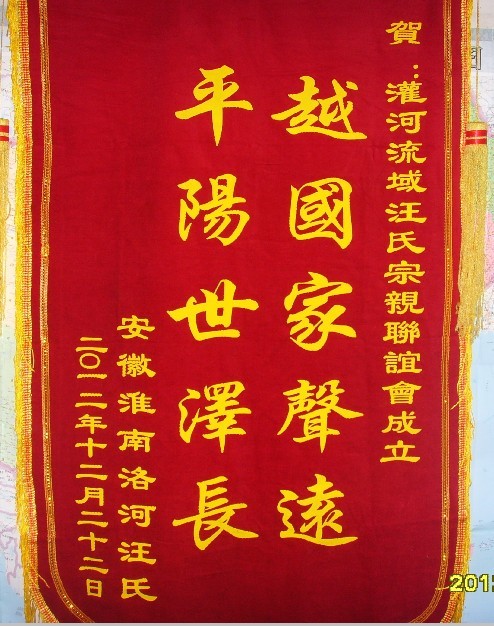 賀：灌河流域汪氏宗親聯誼會成立
越國家聲遠
平陽世澤長
安徽淮南洛河汪氏
二〇一二年十二月二十二日
201